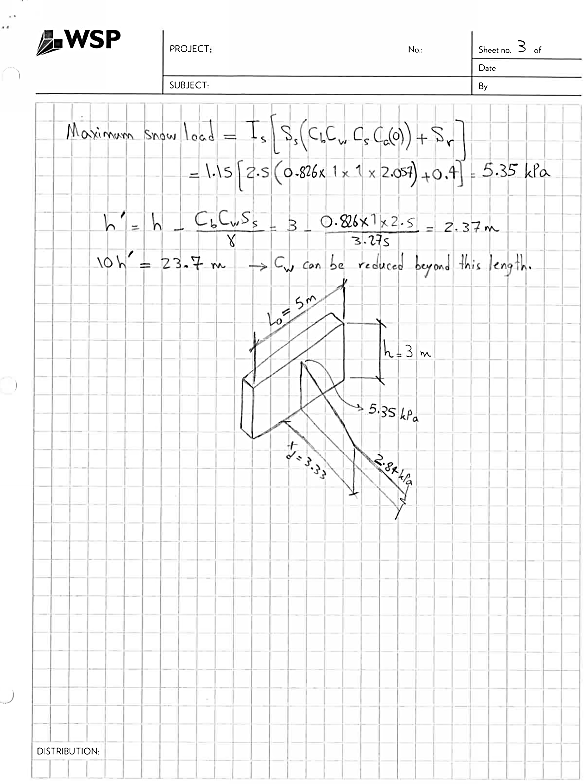 WSP
PROJECT:
No:
Sheet no. 3 of
Date
SUBJECT-
By
Maximum snow load = Is[Ss(CbCw Cs Ca(0)) + Sr]
= 1.15[2.5(0.826 x 1 x 1 x 2.057) + 0.4] = 5.35 kPa
h' = h - CbCwSs/γ = 3 - 0.826x1x2.5/3.275 = 2.37 m
10h' = 23.7 m → Cw can be reduced beyond this length.
Lo = 5m
h = 3 m
5.35 kPa
xd = 3.33
2.84 kPa
DISTRIBUTION: